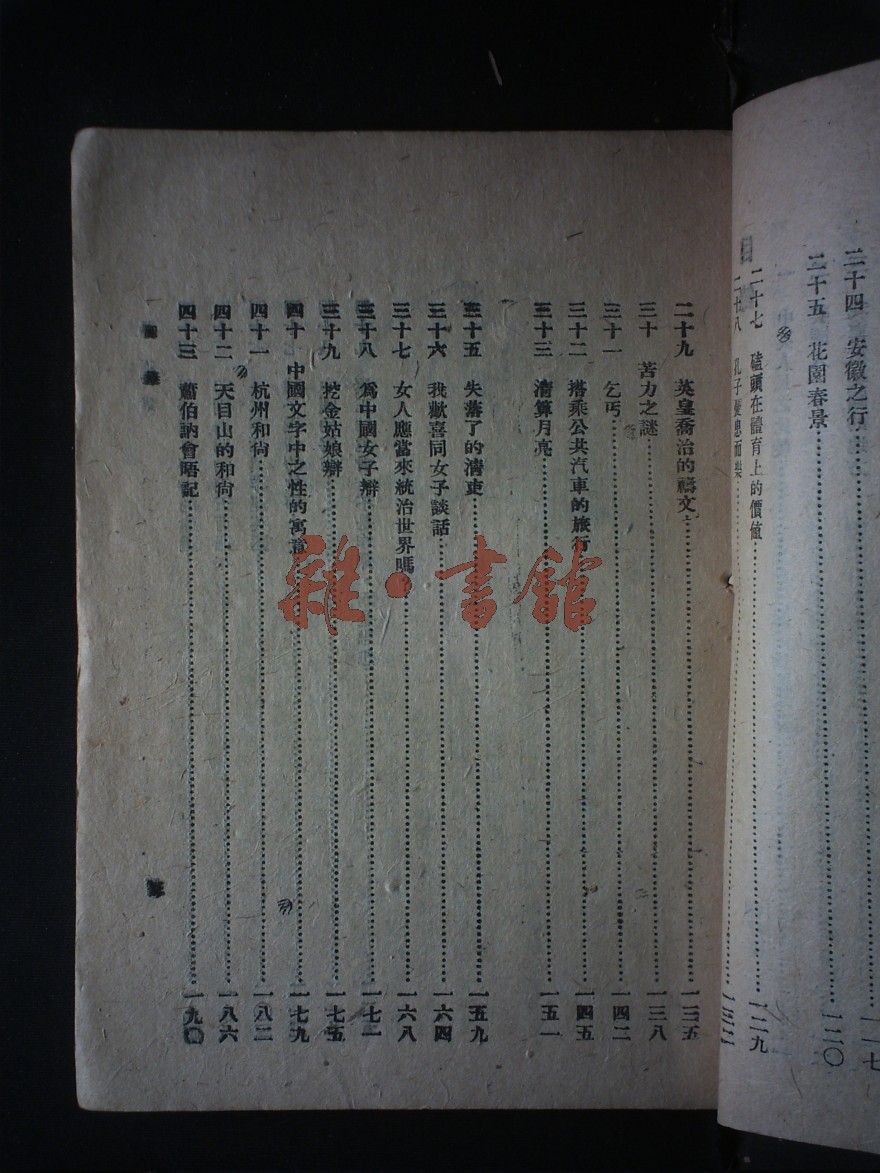 二十四 安徽之行 一一七
二十五 花園春景 一二〇
二十七 磕頭在體育上的價値 一二九
二十八 孔子 而樂
二十九 英皇喬治的禱文 一三五
三十 苦力之謎 一三八
三十一 乞丐 一四二
三十二 搭乘公共汽車的旅行 一四五
三十三 清算月亮 一五一
三十五 失落了的清吏 一五九
三十六 我歡喜同女子談話 一六四
三十七 女人應當來統治世界嗎 一六八
三十八 爲中國女子辯 一七一
三十九 挖金姑娘辯 一七五
四十 中國文字中之性的寓意 一七九
四十一 杭州和尙 一八二
四十二 天目山的和尙 一八六
四十三 蕭伯訥會晤記 一九〇
雜·書館